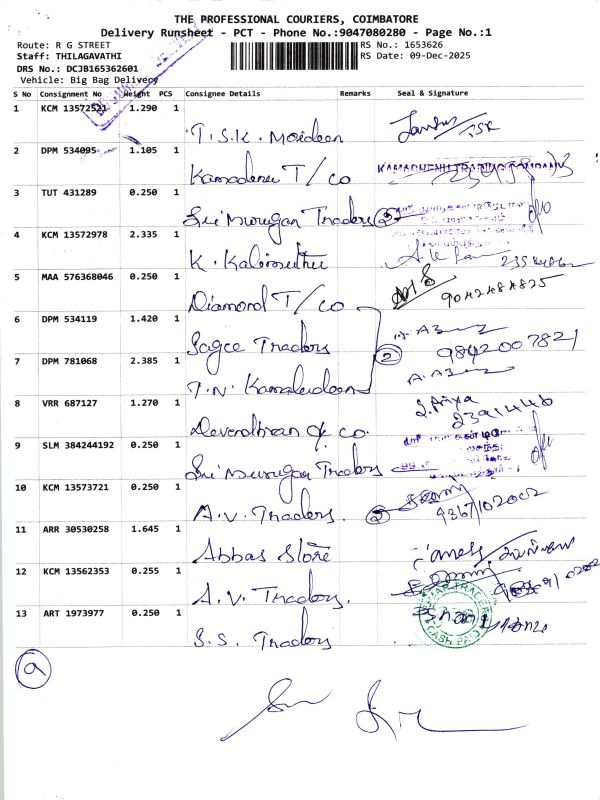 THE PROFESSIONAL COURIERS, COIMBATORE
Delivery Runsheet - PCT - Phone No.:9047080280 - Page No.:1
Route: R G STREET RS No.: 1653626
Staff: THILAGAVATHI RS Date: 09-Dec-2025
DRS No.: DCJB165362601
Vehicle: Big Bag Delivery
S No Consignment No Weight PCS Consignee Details Remarks Seal & Signature
1 KCM 13572521 1.290 1
T.S.K. Moideen
2 DPM 534095 1.105 1 KAMADHENU TRADING COMPANY
Kamadenu T/co
3 TUT 431289 0.250 1
Sri Murugan Traders 2
4 KCM 13572978 2.335 1
K. Kalimuthu
5 MAA 576368046 0.250 1
9042484825
Diamond T/co
6 DPM 534119 1.420 1
Sagee Traders 2 9842007821
7 DPM 781068 2.385 1
T.N. Kamaludeen
8 VRR 687127 1.270 1
2391446
Devendhran & co.
9 SLM 384244192 0.250 1
Sri Murugan Traders
10 KCM 13573721 0.250 1
A.V. Traders. 2 9367102002
11 ARR 30530258 1.645 1
Abbas Store
12 KCM 13562353 0.255 1
A.V. Traders.
13 ART 1973977 0.250 1
CASH PAID
S.S. Traders
9